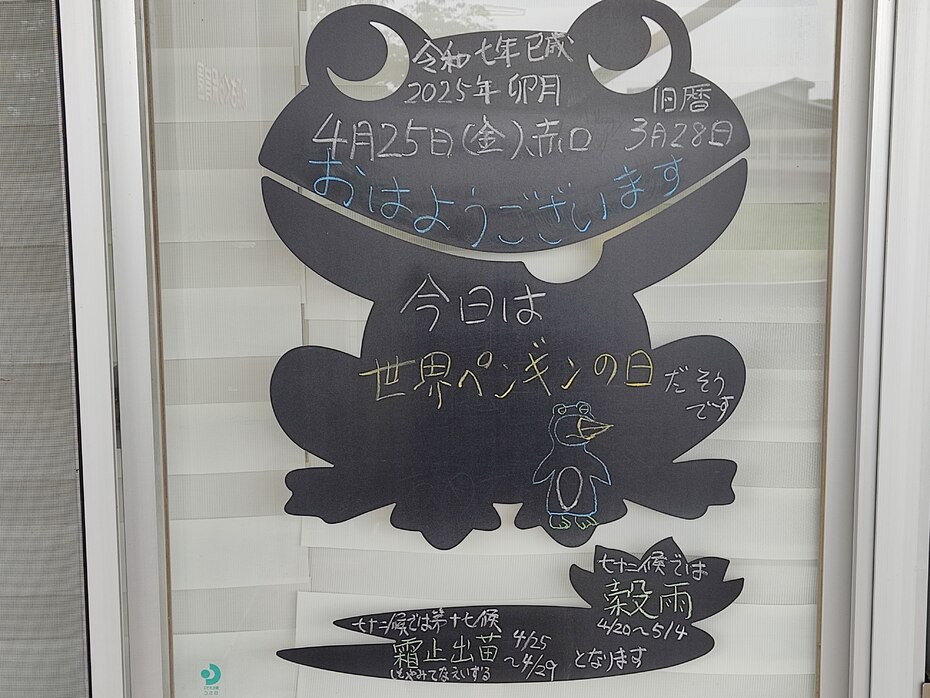 令和七年 乙巳歳
2025年 卯月
旧暦
4月25日(金)赤口 3月28日
おはようございます
今日は
世界ペンギンの日だそう
です
七十二候では
穀雨
4/20〜5/4
七十二候では第十七候
霜止出苗 4/25
〜4/29 となります
しもやみてなえいずる